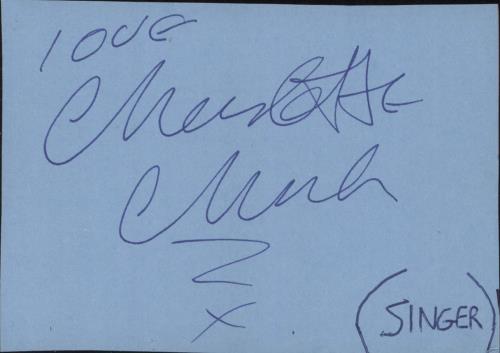 love
Charlotte
Church
x
(SINGER)